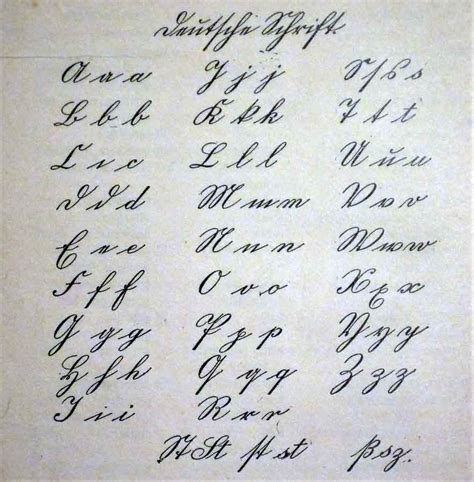 Deutsche Schrift.
A a a J j j S ſ s s
B b b K k k T t t
C c c L l l U u u
D d d M m m V v v
E e e N n n W w w
F f f O o o X x x
G g g P p p Y y y
H h h Q q q Z z z
I i i R r r
St St ſt st ß sz.